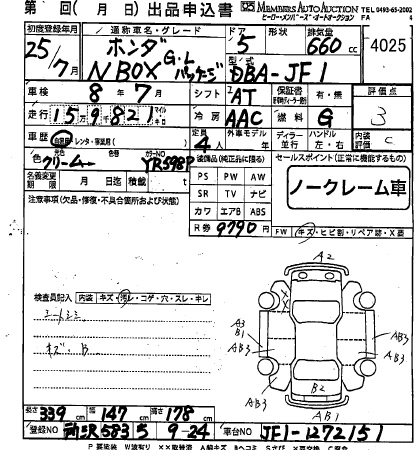 第 回( 月 日) 出品申込書 MEMBERS AUTO AUCTION TEL 0493-65-2002
ヒーロー・メンバーズ・オートオークション FA 4
初度登録年月 通称車名・グレード ドア 形状 排気量
25/7月 ホンダ N BOX G・L パッケージ 5 660cc 4025
DBA-JF1
車検 8年7月 シフト AT 保証書 有・無 燃料 評価点
走行 159821 冷房 AAC G 3
車歴 自家用 レンタ・事業用( ) 定員 4人 外車モデル ディラー 並行 ハンドル 左・右 内装 C
色 クリーム 色替 カラーNO YR598P 装備品(純正品に限る) セールスポイント(正常に機能するもの)
名義変更期限 月 日迄 積載 t PS PW AW
SR TV ナビ
カワ エアB ABS
ノークレーム車
注意事項(欠品・修復・不具合箇所および状態)
R券 9790円 FW キズ・ヒビ割・リペア跡・X要
検査員記入 内装 キズ・汚レ・コゲ・穴・スレ・キレ
A2
A3
B1
AB3
AB3
AB3
B2
AB1
キズ・B
長さ 339cm 幅 147cm 高さ 178cm
登録NO 583 9-24 車台NO JF1-1272151